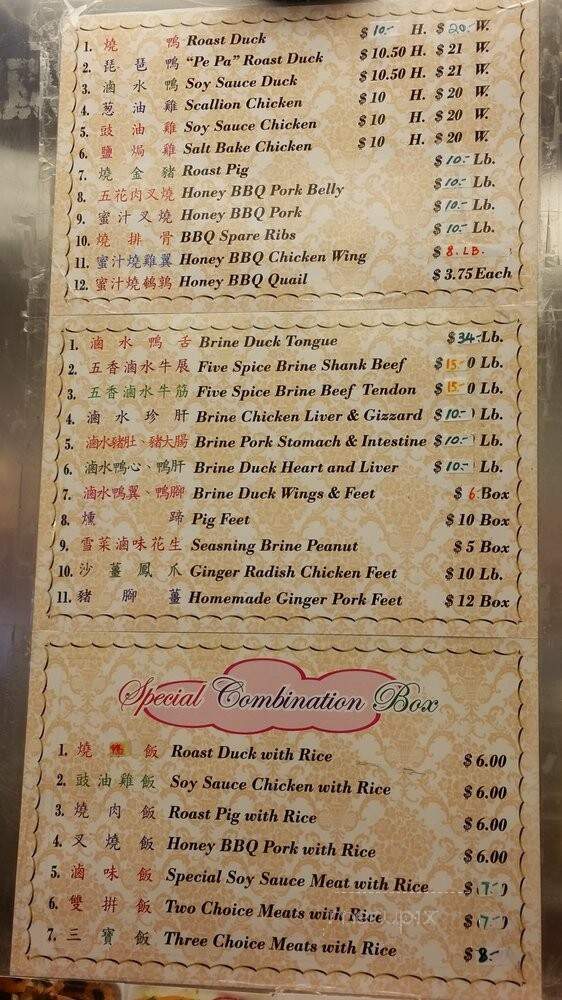 1. 燒 鴨 Roast Duck $ 10.- H. $ 20.- W.
2. 琵 琶 鴨 "Pe Pa" Roast Duck $ 10.50 H. $ 21 W.
3. 滷 水 鴨 Soy Sauce Duck $ 10.50 H. $ 21 W.
4. 葱 油 雞 Scallion Chicken $ 10 H. $ 20 W.
5. 豉 油 雞 Soy Sauce Chicken $ 10 H. $ 20 W.
6. 鹽 焗 雞 Salt Bake Chicken $ 10 H. $ 20 W.
7. 燒 金 豬 Roast Pig $ 10.- Lb.
8. 五花肉叉燒 Honey BBQ Pork Belly $ 10.- Lb.
9. 蜜 汁 叉 燒 Honey BBQ Pork $ 10.- Lb.
10. 燒 排 骨 BBQ Spare Ribs $ 10.- Lb.
11. 蜜汁燒雞翼 Honey BBQ Chicken Wing $ 8. LB.
12. 蜜汁燒鵪鶉 Honey BBQ Quail $ 3.75 Each
1. 滷 水 鴨 舌 Brine Duck Tongue $ 34.- Lb.
2. 五香滷水牛展 Five Spice Brine Shank Beef $ 15.- 0 Lb.
3. 五香滷水牛筋 Five Spice Brine Beef Tendon $ 15.- 0 Lb.
4. 滷 水 珍 肝 Brine Chicken Liver & Gizzard $ 10.- Lb.
5. 滷水豬肚、豬大腸 Brine Pork Stomach & Intestine $ 10.- Lb.
6. 滷水鴨心、鴨肝 Brine Duck Heart and Liver $ 10.- Lb.
7. 滷水鴨翼、鴨腳 Brine Duck Wings & Feet $ 6. Box
8. 燻 蹄 Pig Feet $ 10 Box
9. 雪菜滷味花生 Seasning Brine Peanut $ 5 Box
10. 沙 薑 鳳 爪 Ginger Radish Chicken Feet $ 10 Lb.
11. 豬 腳 薑 Homemade Ginger Pork Feet $ 12 Box
Special Combination Box
1. 燒 飯 Roast Duck with Rice $ 6.00
2. 豉 油 雞 飯 Soy Sauce Chicken with Rice $ 6.00
3. 燒 肉 飯 Roast Pig with Rice $ 6.00
4. 叉 燒 飯 Honey BBQ Pork with Rice $ 6.00
5. 滷 味 飯 Special Soy Sauce Meat with Rice $ 7.-
6. 雙 拼 飯 Two Choice Meats with Rice $ 7.-
7. 三 寶 飯 Three Choice Meats with Rice $ 8.-